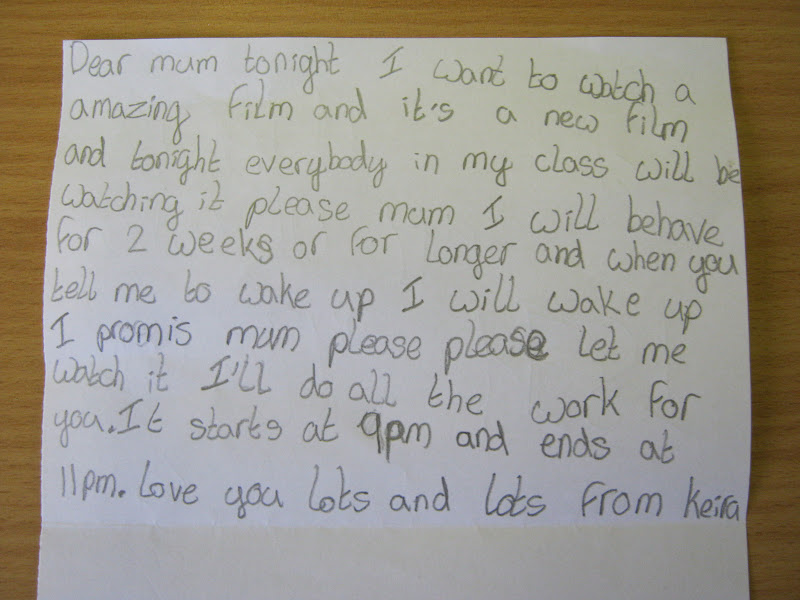 Dear mum tonight I want to watch a
amazing film and it's a new film
and tonight everybody in my class will be
watching it please mum I will behave
for 2 weeks or for longer and when you
tell me to wake up I will wake up
I promis mum please please let me
watch it I'll do all the work for
you. It starts at 9pm and ends at
11pm. Love you lots and lots from Keira